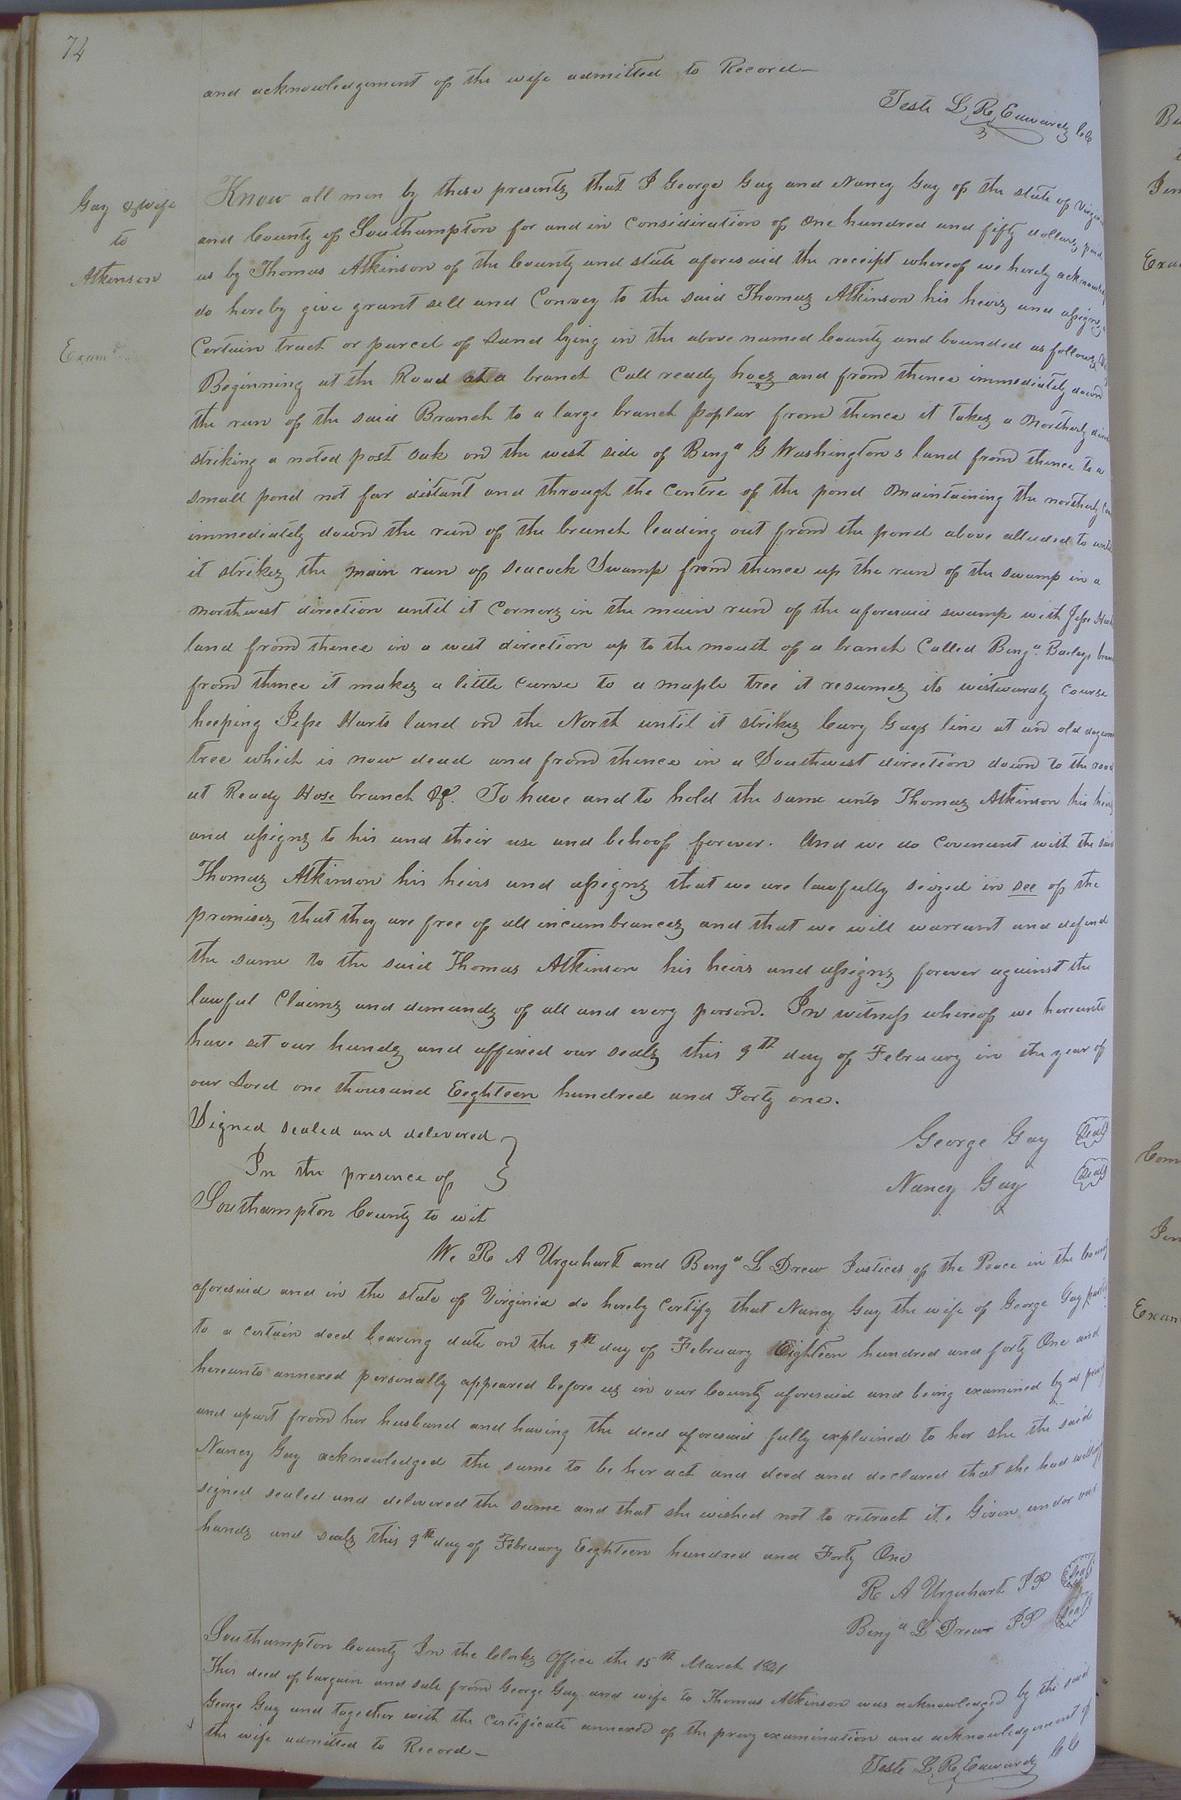 74
and acknowledgement of the wife admitted to Record—
Teste L. R. Edwards CC
Gay & wife
to
Atkinson
Exam.d
Know all men by these presents that I George Gay and Nancy Gay of the state of Virginia
and County of Southampton for and in consideration of One hundred and fifty dollars paid
us by Thomas Atkinson of the County and state aforesaid the receipt whereof we hereby acknowledge
do hereby give grant sell and Convey to the said Thomas Atkinson his heirs and assigns
Certain tract or parcel of Land lying in the above named County and bounded as follows
Beginning at the Road at a branch Call ready hoes and from thence immediately down
the run of the said Branch to a large branch poplar from thence it takes a Northerly
striking a noted post Oak on the west side of Benja G Washingtons land from thence to a
small pond not far distant and through the Centre of the pond Maintaining the northerly
immediately down the run of the branch leading out from the pond above alluded to until
it strikes the main run of Seacock Swamp from thence up the run of the swamp in a
Northwest direction until it Corners in the main run of the aforesaid swamp with Jesse
land from thence in a west direction up to the mouth of a branch Called Benja. Baileys
from thence it makes a little Curve to a maple tree it resumes its westwardly Course
keeping Jesse Harts land on the North until it strikes Cary Gays line at an old
tree which is now dead and from thence in a Southwest direction down to the road
at Ready Hose branch &c. To have and to hold the same unto Thomas Atkinson his heirs
and assigns to his and their use and behoof forever. And we do Covenant with the said
Thomas Atkinson his heirs and assigns that we are lawfully seized in see of the
premises that they are free of all incumbrances and that we will warrant and defend
the same to the said Thomas Atkinson his heirs and assigns forever against the
lawful Claims and demands of all and every person. In witness whereof we hereunto
have set our hands and affixed our seals this 9th day of February in the year of
our Lord one thousand Eighteen hundred and Forty one.
Signed sealed and delivered
In the presence of
George Gay Seal
Nancy Gay Seal
Southampton County to wit
We R A Urquhart and Benja L Drew Justices of the Peace in the County
aforesaid and in the state of Virginia do hereby Certify that Nancy Gay the wife of George Gay
to a certain deed bearing date on the 9th day of February Eighteen hundred and forty One and
hereunto annexed personally appeared before us in our County aforesaid and being examined by us
and apart from her husband and having the deed aforesaid fully explained to her she the said
Nancy Gay acknowledged the same to be her act and deed and declared that she had willingly
signed sealed and delivered the same and that she wished not to retract it. Given under our
hands and seals this 9th day of February Eighteen hundred and Forty One
R A Urquhart JP Seal
Benja L Drew JP Seal
Southampton County In the Clerks Office the 15th March 1841
This deed of bargain and sale from George Gay and wife to Thomas Atkinson was acknowledged by the said
George Gay and together with the Certificate annexed of the privy examination and acknowledgement of
the wife admitted to Record—
Teste L. R. Edwards CC